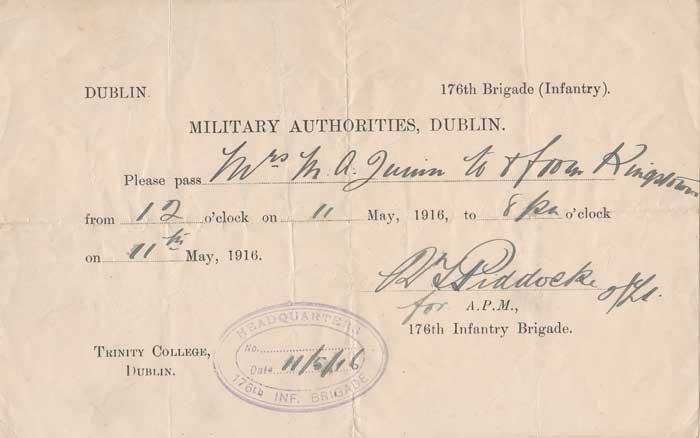 DUBLIN. 176th Brigade (Infantry).
MILITARY AUTHORITIES, DUBLIN.
Please pass Mrs M. A. Quinn to & from Kingstown
from 12 o'clock on 11 May, 1916, to 8 pm o'clock
on 11th May, 1916.
Piddocke
for A.P.M.,
176th Infantry Brigade.
HEADQUARTERS
No.
Date 11/5/16
176th INF. BRIGADE
TRINITY COLLEGE,
DUBLIN.